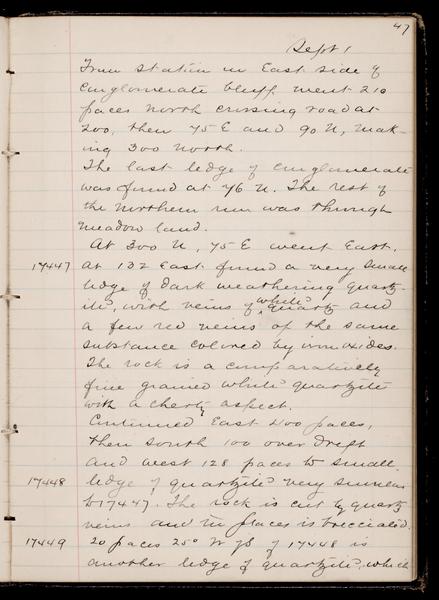 47
Sept 1
From station on East side of
conglomerate bluff went 210
paces north crossing road at
200, then 75 E and 90 N, mak-
ing 300 north.
The last ledge of conglomerate
was found at 76 N. The rest of
the northern run was through
meadow land.
At 300 N, 75 E went East.
17447 At 132 East found a very small
ledge of dark weathering quartz-
ite, with veins of white quartz and
a few red veins of the same
substance colored by iron oxides.
The rock is a comparatively
fine grained white quartzite
with a cherty aspect.
Continued East 200 paces,
then south 100 over drift
and west 128 paces to small
17448 ledge of quartzite very similar
to 17447. The rock is cut by quartz
veins and in places is brecciated.
17449 20 paces 25° W of 17448 is
another ledge of quartzite, which